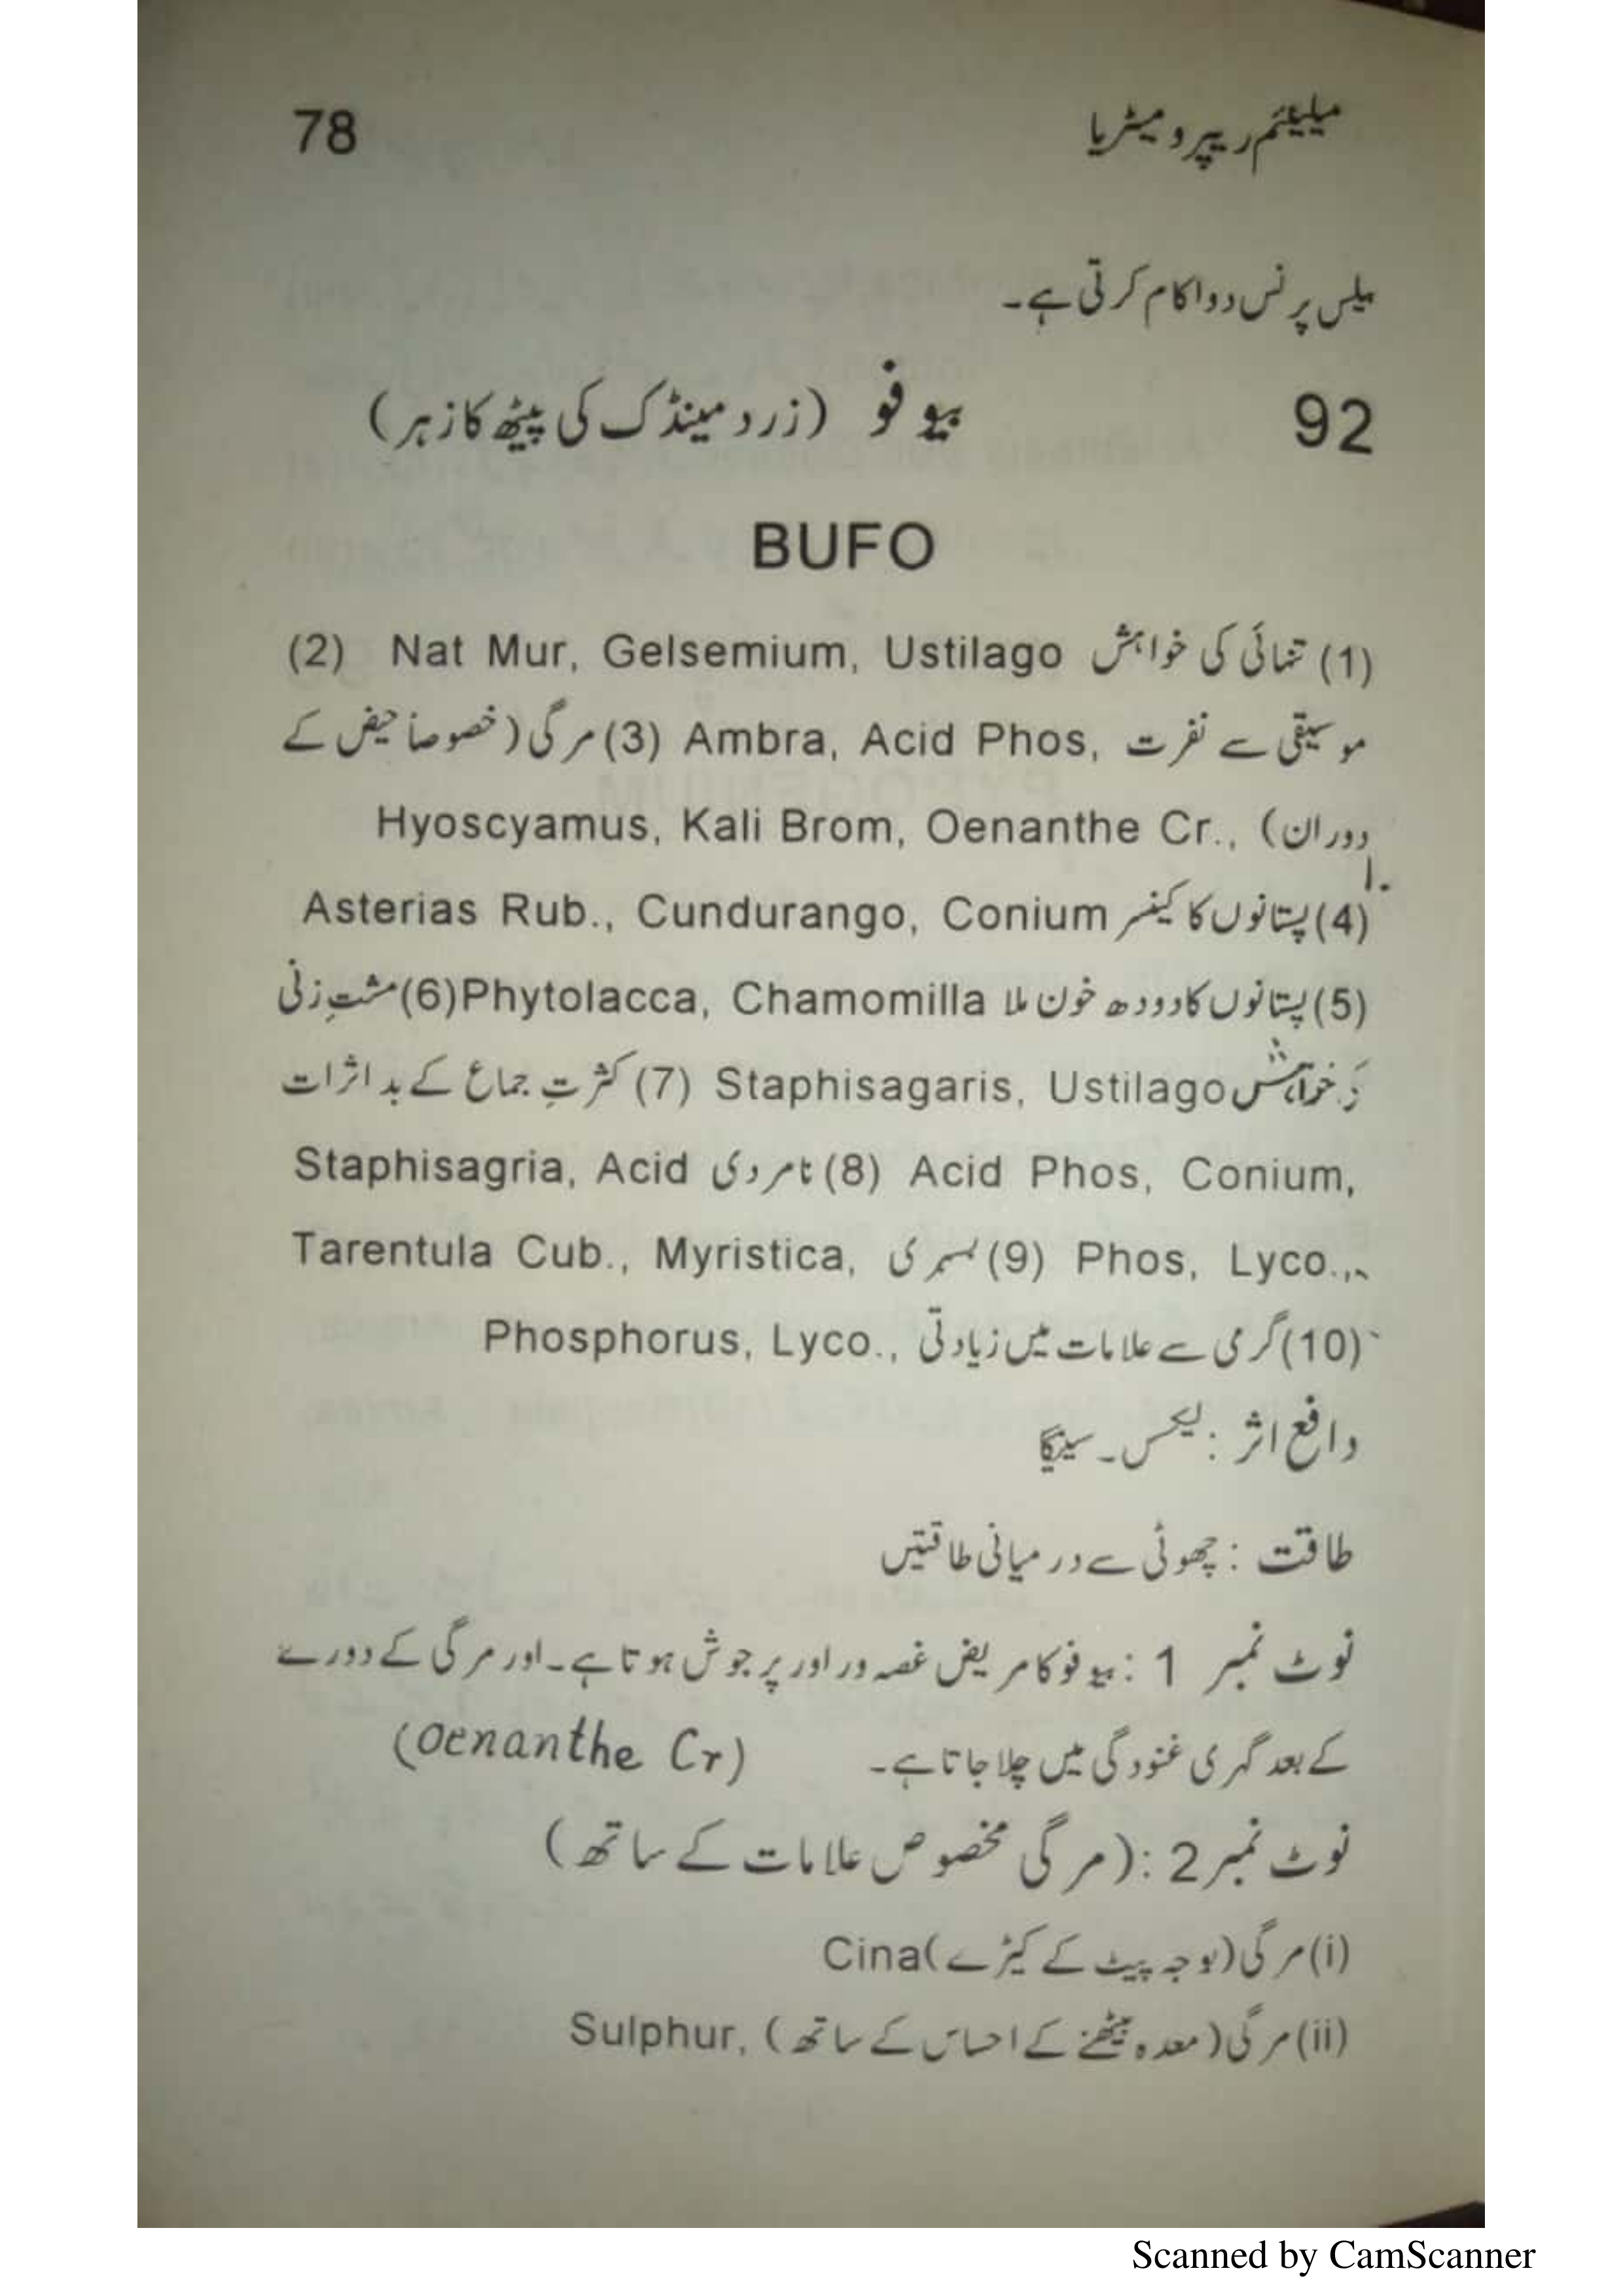 میلینئم ریپرومیٹریا 78
بیلس پرنس دوا کام کرتی ہے۔
92 بیوفو (زرد مینڈک کی پیٹھ کا زہر)
BUFO
(1) تنہائی کی خواہش Nat Mur, Gelsemium, Ustilago (2)
موسیقی سے نفرت Ambra, Acid Phos, (3) مرگی (خصوصاً حیض کے
دوران) Hyoscyamus, Kali Brom, Oenanthe Cr.,
(4) پستانوں کا کینسر Asterias Rub., Cundurango, Conium
(5) پستانوں کا دودھ خون ملا Phytolacca, Chamomilla (6) مشت زنی
خواہش Staphisagaris, Ustilago (7) کثرتِ جماع کے بد اثرات
Acid Phos, Conium, (8) نامردی Staphisagria, Acid
Phos, Lyco., (9) بسہری Tarentula Cub., Myristica,
(10) گرمی سے علامات میں زیادتی Phosphorus, Lyco.,
دافع اثر : لیکس۔ سینیگا
طاقت : چھوٹی سے درمیانی طاقتیں
نوٹ نمبر 1 : بیوفو کا مریض غصہ ور اور پر جوش ہوتا ہے۔ اور مرگی کے دورے
کے بعد گہری غنودگی میں چلا جاتا ہے۔ (Oenanthe Cr)
نوٹ نمبر 2 : (مرگی مخصوص علامات کے ساتھ)
(i) مرگی (بوجہ پیٹ کے کیڑے) Cina
(ii) مرگی (معدہ بیٹھنے کے احساس کے ساتھ) Sulphur,
Scanned by CamScanner